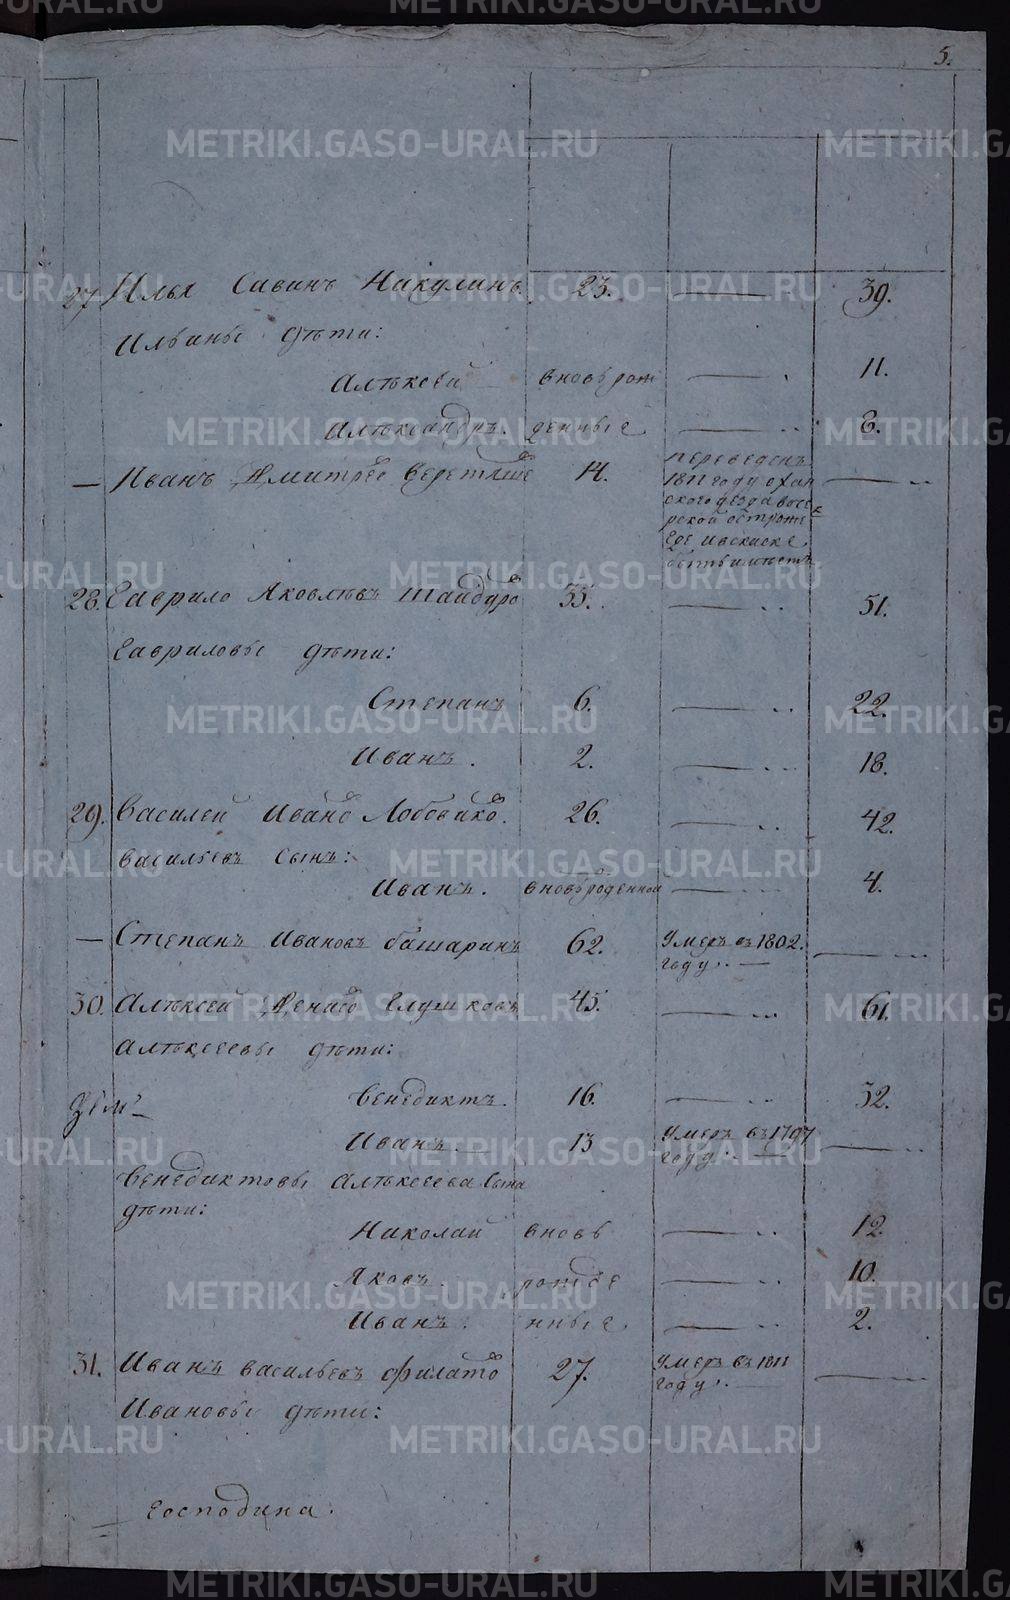 5.
27 Илья Савинъ Никулинъ 23. — 39.
Ильины дѣти:
Алѣксѣй вновь рож — 11.
Алѣксандръ. денные — 8.
— Иванъ Дмитрее 14. переведенъ —
1811 году охан
ского уезда
рской острож
быть имѣетъ
28. Гаврило Яковлѣвъ Шайдуро 35. — 51.
Гавриловы дѣти:
Степанъ 6. — 22.
Иванъ. 2. — 18.
29. Василей Ивано Лобовико. 26. — 42.
Васильевъ сынъ:
Иванъ. вновьроденной — 4.
— Степанъ Ивановъ башаринъ 62. Умеръ въ 1802. —
году. —
30. Алѣксей Денисо Глушковъ 45. — 61.
Алѣксеевы дѣти:
Венедиктъ. 16. — 32.
Иванъ. 13 Умеръ въ 1797 —
году. —
Венедиктовы Алѣксеева сына
дѣти:
Николай вновь — 12.
Яковъ. рожде — 10.
Иванъ. нные — 2.
31. Иванъ васильевъ филато 27. Умеръ въ 1811 —
году. —
Ивановы дѣти:
Господина.
METRIKI.GASO-URAL.RU